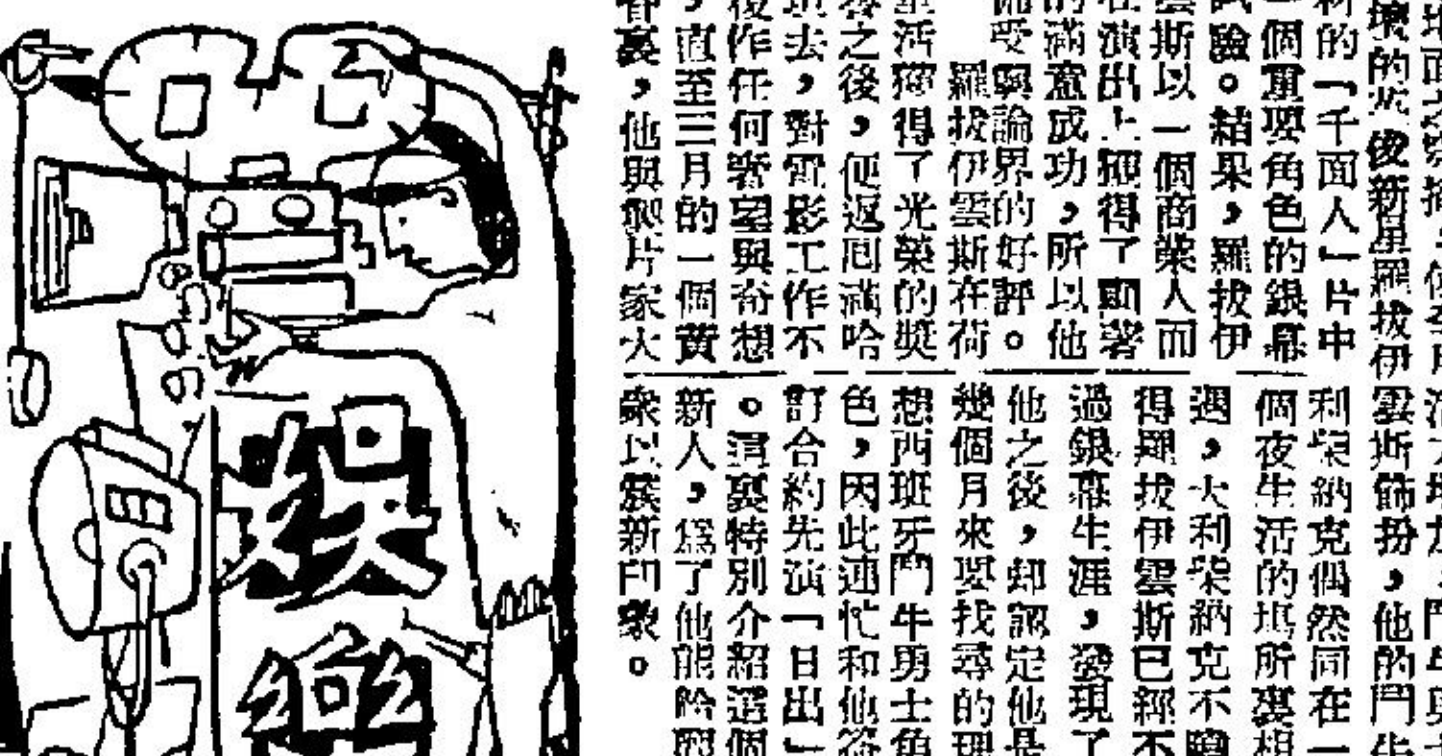 後新星羅拔伊雲斯飾扮，他的鬥牛
的「千面人」片中
一個重要角色的銀幕
試驗。結果，羅拔伊
雲斯以一個商業人而
在演出上獲得了顯著
的滿意成功，所以他
備受輿論界的好評。
羅拔伊雲斯在荷
里活獲得了光榮的獎
譽之後，便返回滿哈
頓去，對電影工作不
復作任何奢望與奇想
，直至三月的一個黃
昏裏，他與製片家大
利柴納克偶然同在一
個夜生活的場所裏相
遇，大利柴納克不曉
得羅拔伊雲斯已經不
過銀幕生涯，發現了
他之後，卻認定他是
幾個月來要找尋的理
想西班牙鬥牛勇士角
色，因此連忙和他簽
訂合約先演「日出」
。這裏特別介紹這個
新人，爲了他能給觀
衆以簇新印象。
娛樂